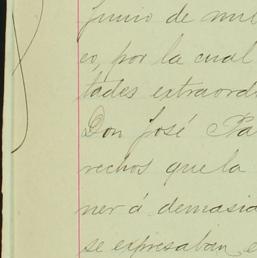 Junio de mil
co, por la cual
tades extraord
Don José Pa
rechos que la
ner á demasia
se expresaban e